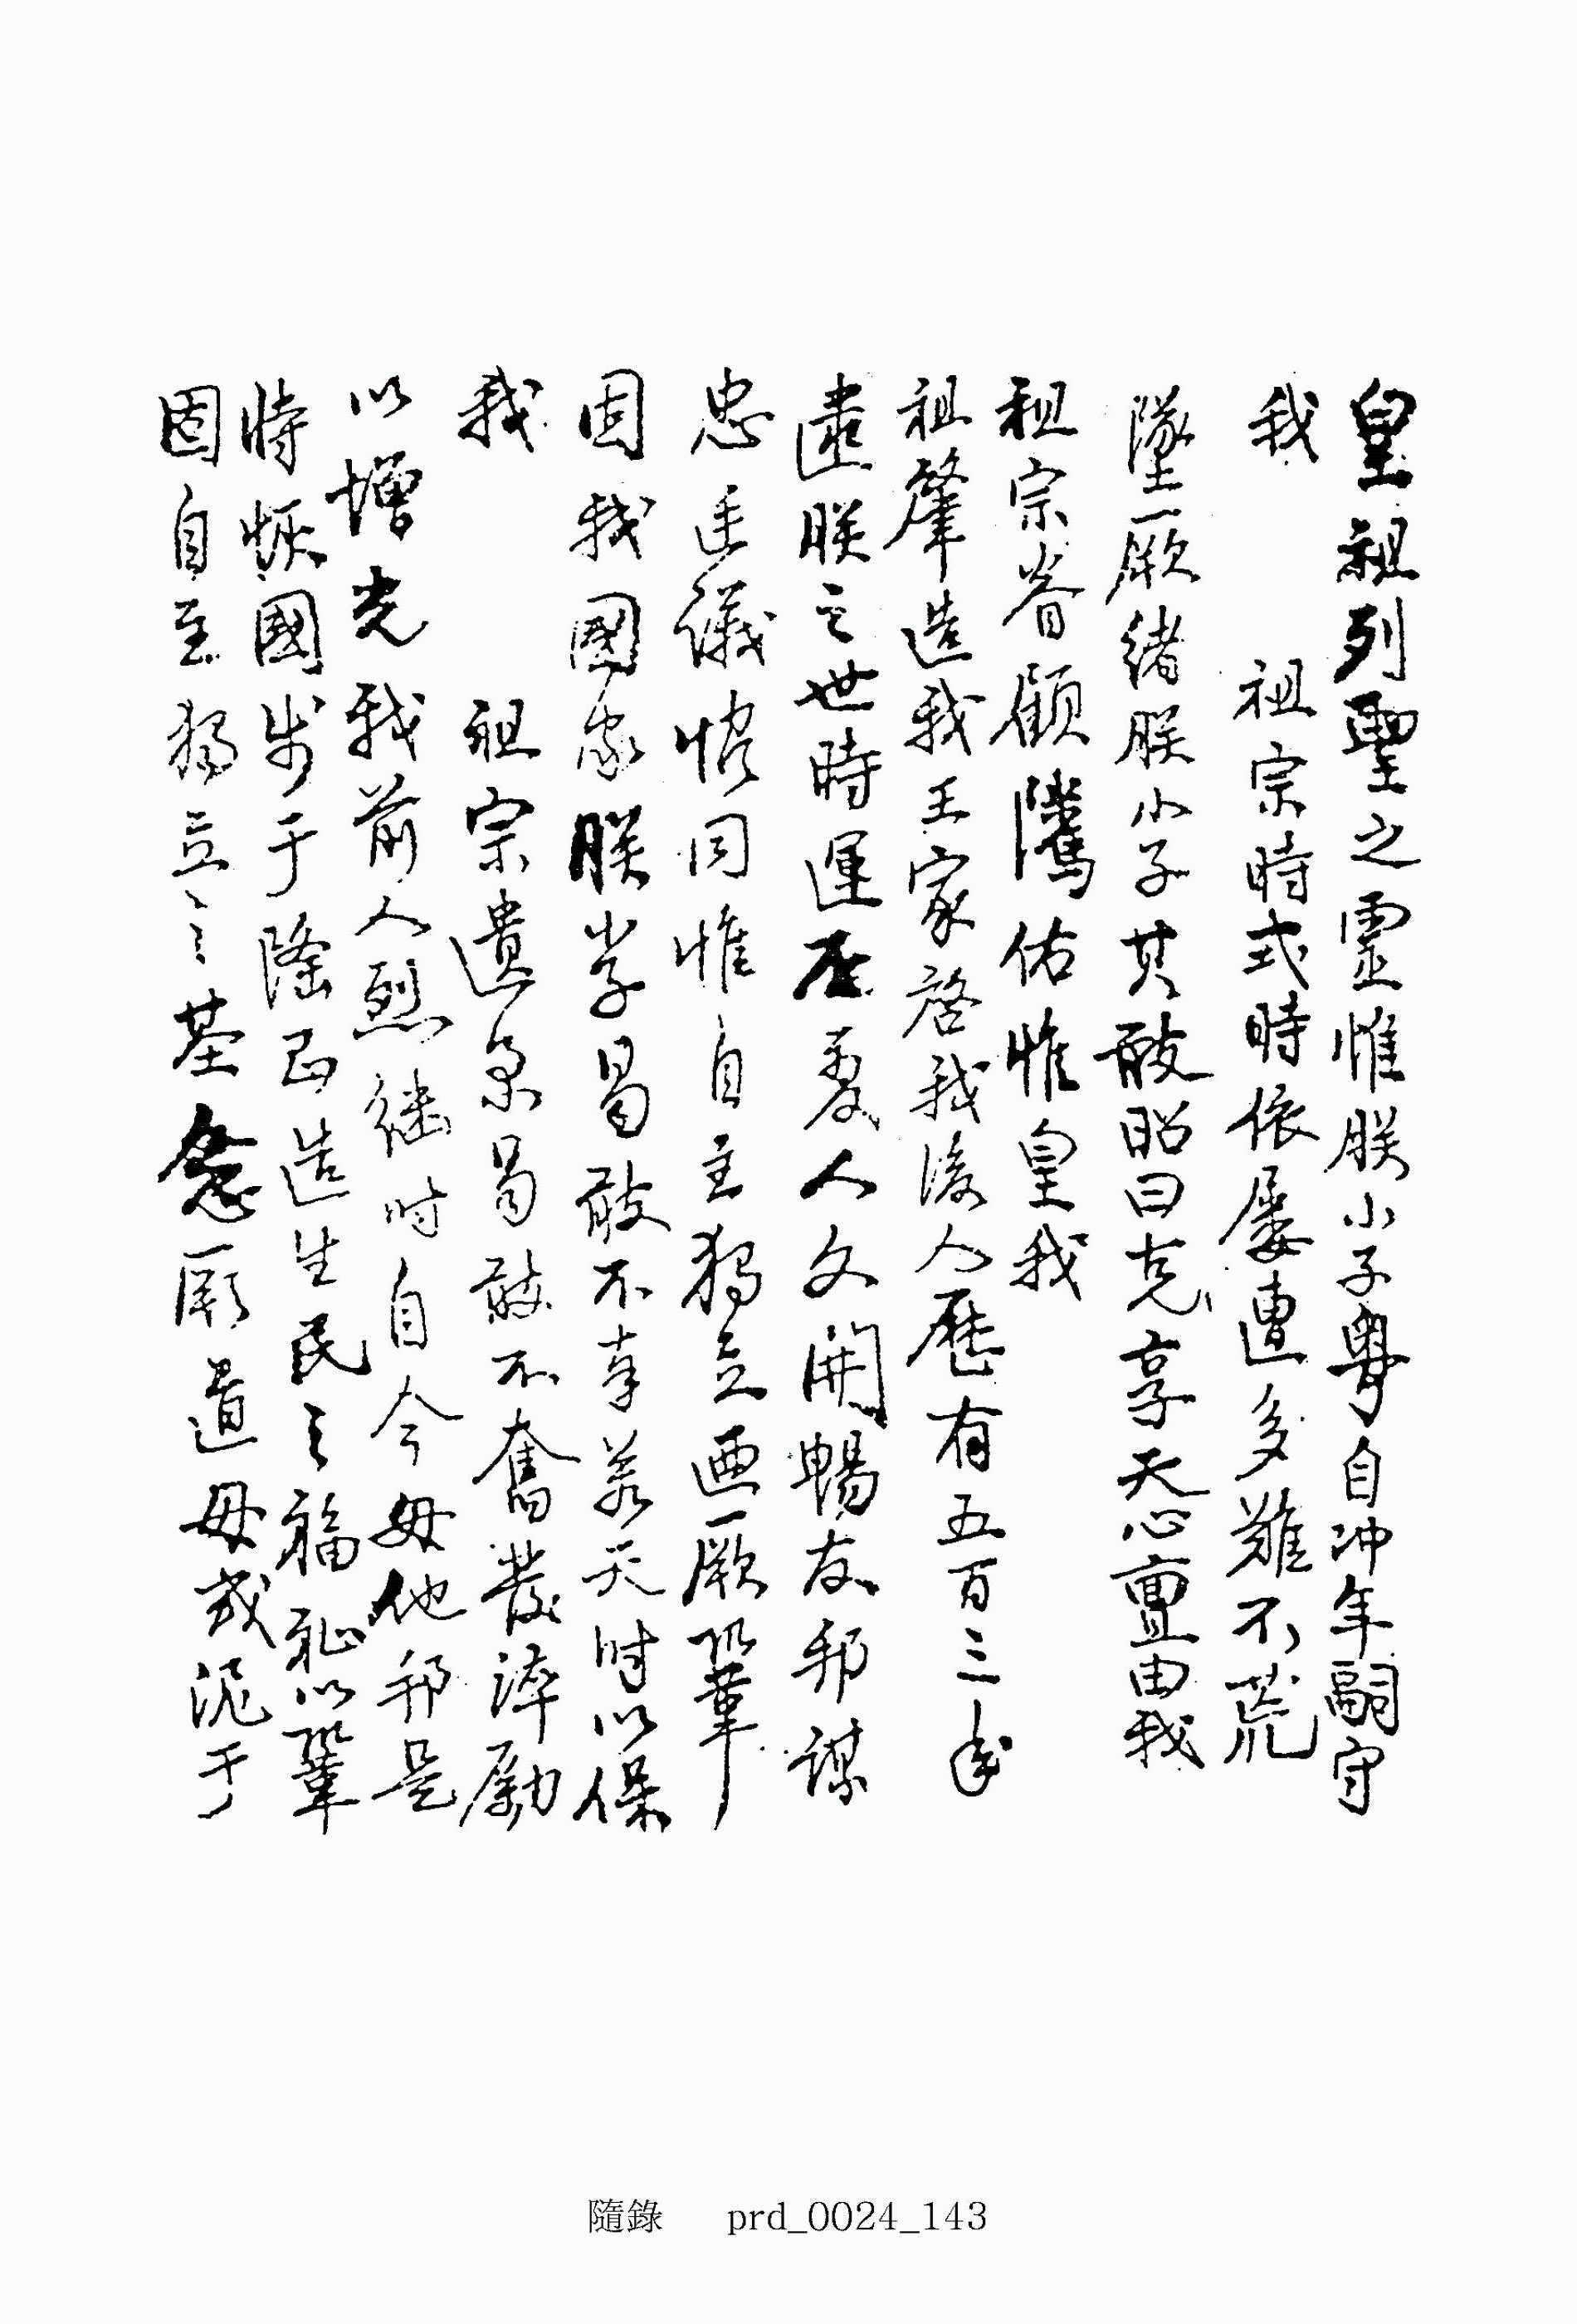 皇祖列聖之靈惟朕小子粤自冲年嗣守
我 祖宗時式時依屡遭多難不荒
墜厥緒朕小子其敢昭曰克享天心亶由我
祖宗眷顧騭佑惟皇我
祖肇造我王家啓我後人歷有五百三年
逮朕之世時運丕變人文開暢友邦謀
忠廷議恊同惟自主獨立迺厥鞏
固我國家朕小子曷敢不奉若天时以保
我 祖宗遺業曷敢不奮發淬勵
以增光我前人烈继时自今毋他邦是
恃恢國步于隆昌造生民之福祉以鞏
固自主獨立之基念厥道毋或泥于
隨錄 prd_0024_143